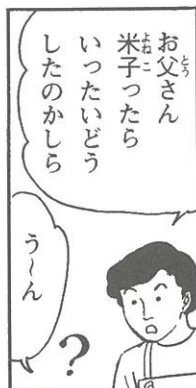 お父さん
米子ったら
いったいどう
したのかしら
う〜ん
?